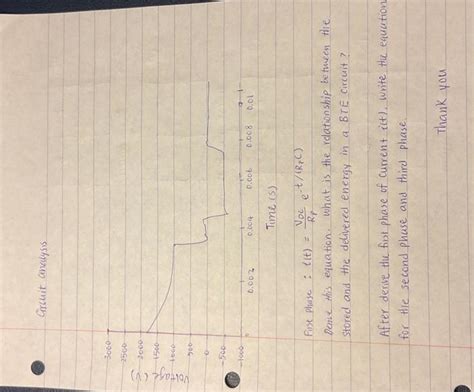 Circuit analysis
Voltage (V)
3000
2500
2000
1500
1000
500
0
-500
-1000
0.002
0.004
0.006
0.008
0.01
Time (s)
First phase : i(t) = V_DC / R_P e^-t/(R_P C)
Derive this equation. What is the relationship between the
stored and the delivered energy in a BTE circuit?
After derive the first phase of current i(t), write the equation
for the second phase and third phase.
Thank you